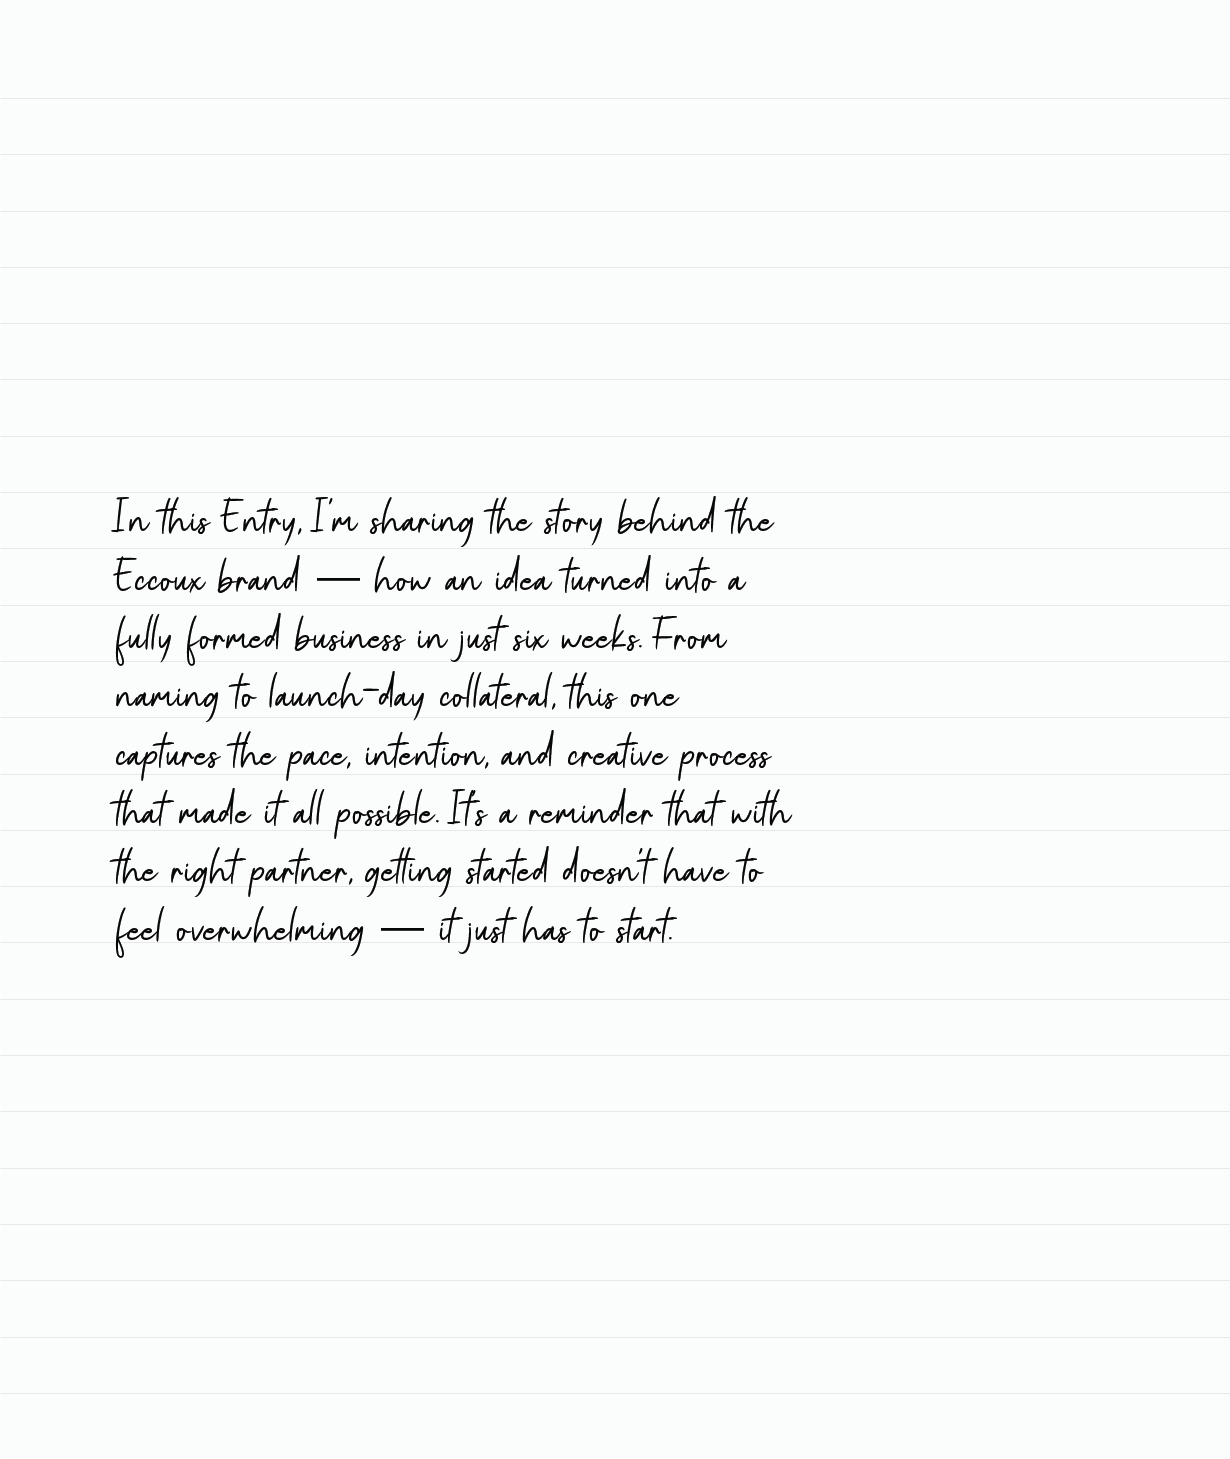 In this Entry, I'm sharing the story behind the
Eccoux brand — how an idea turned into a
fully formed business in just six weeks. From
naming to launch-day collateral, this one
captures the pace, intention, and creative process
that made it all possible. It's a reminder that with
the right partner, getting started doesn't have to
feel overwhelming — it just has to start.